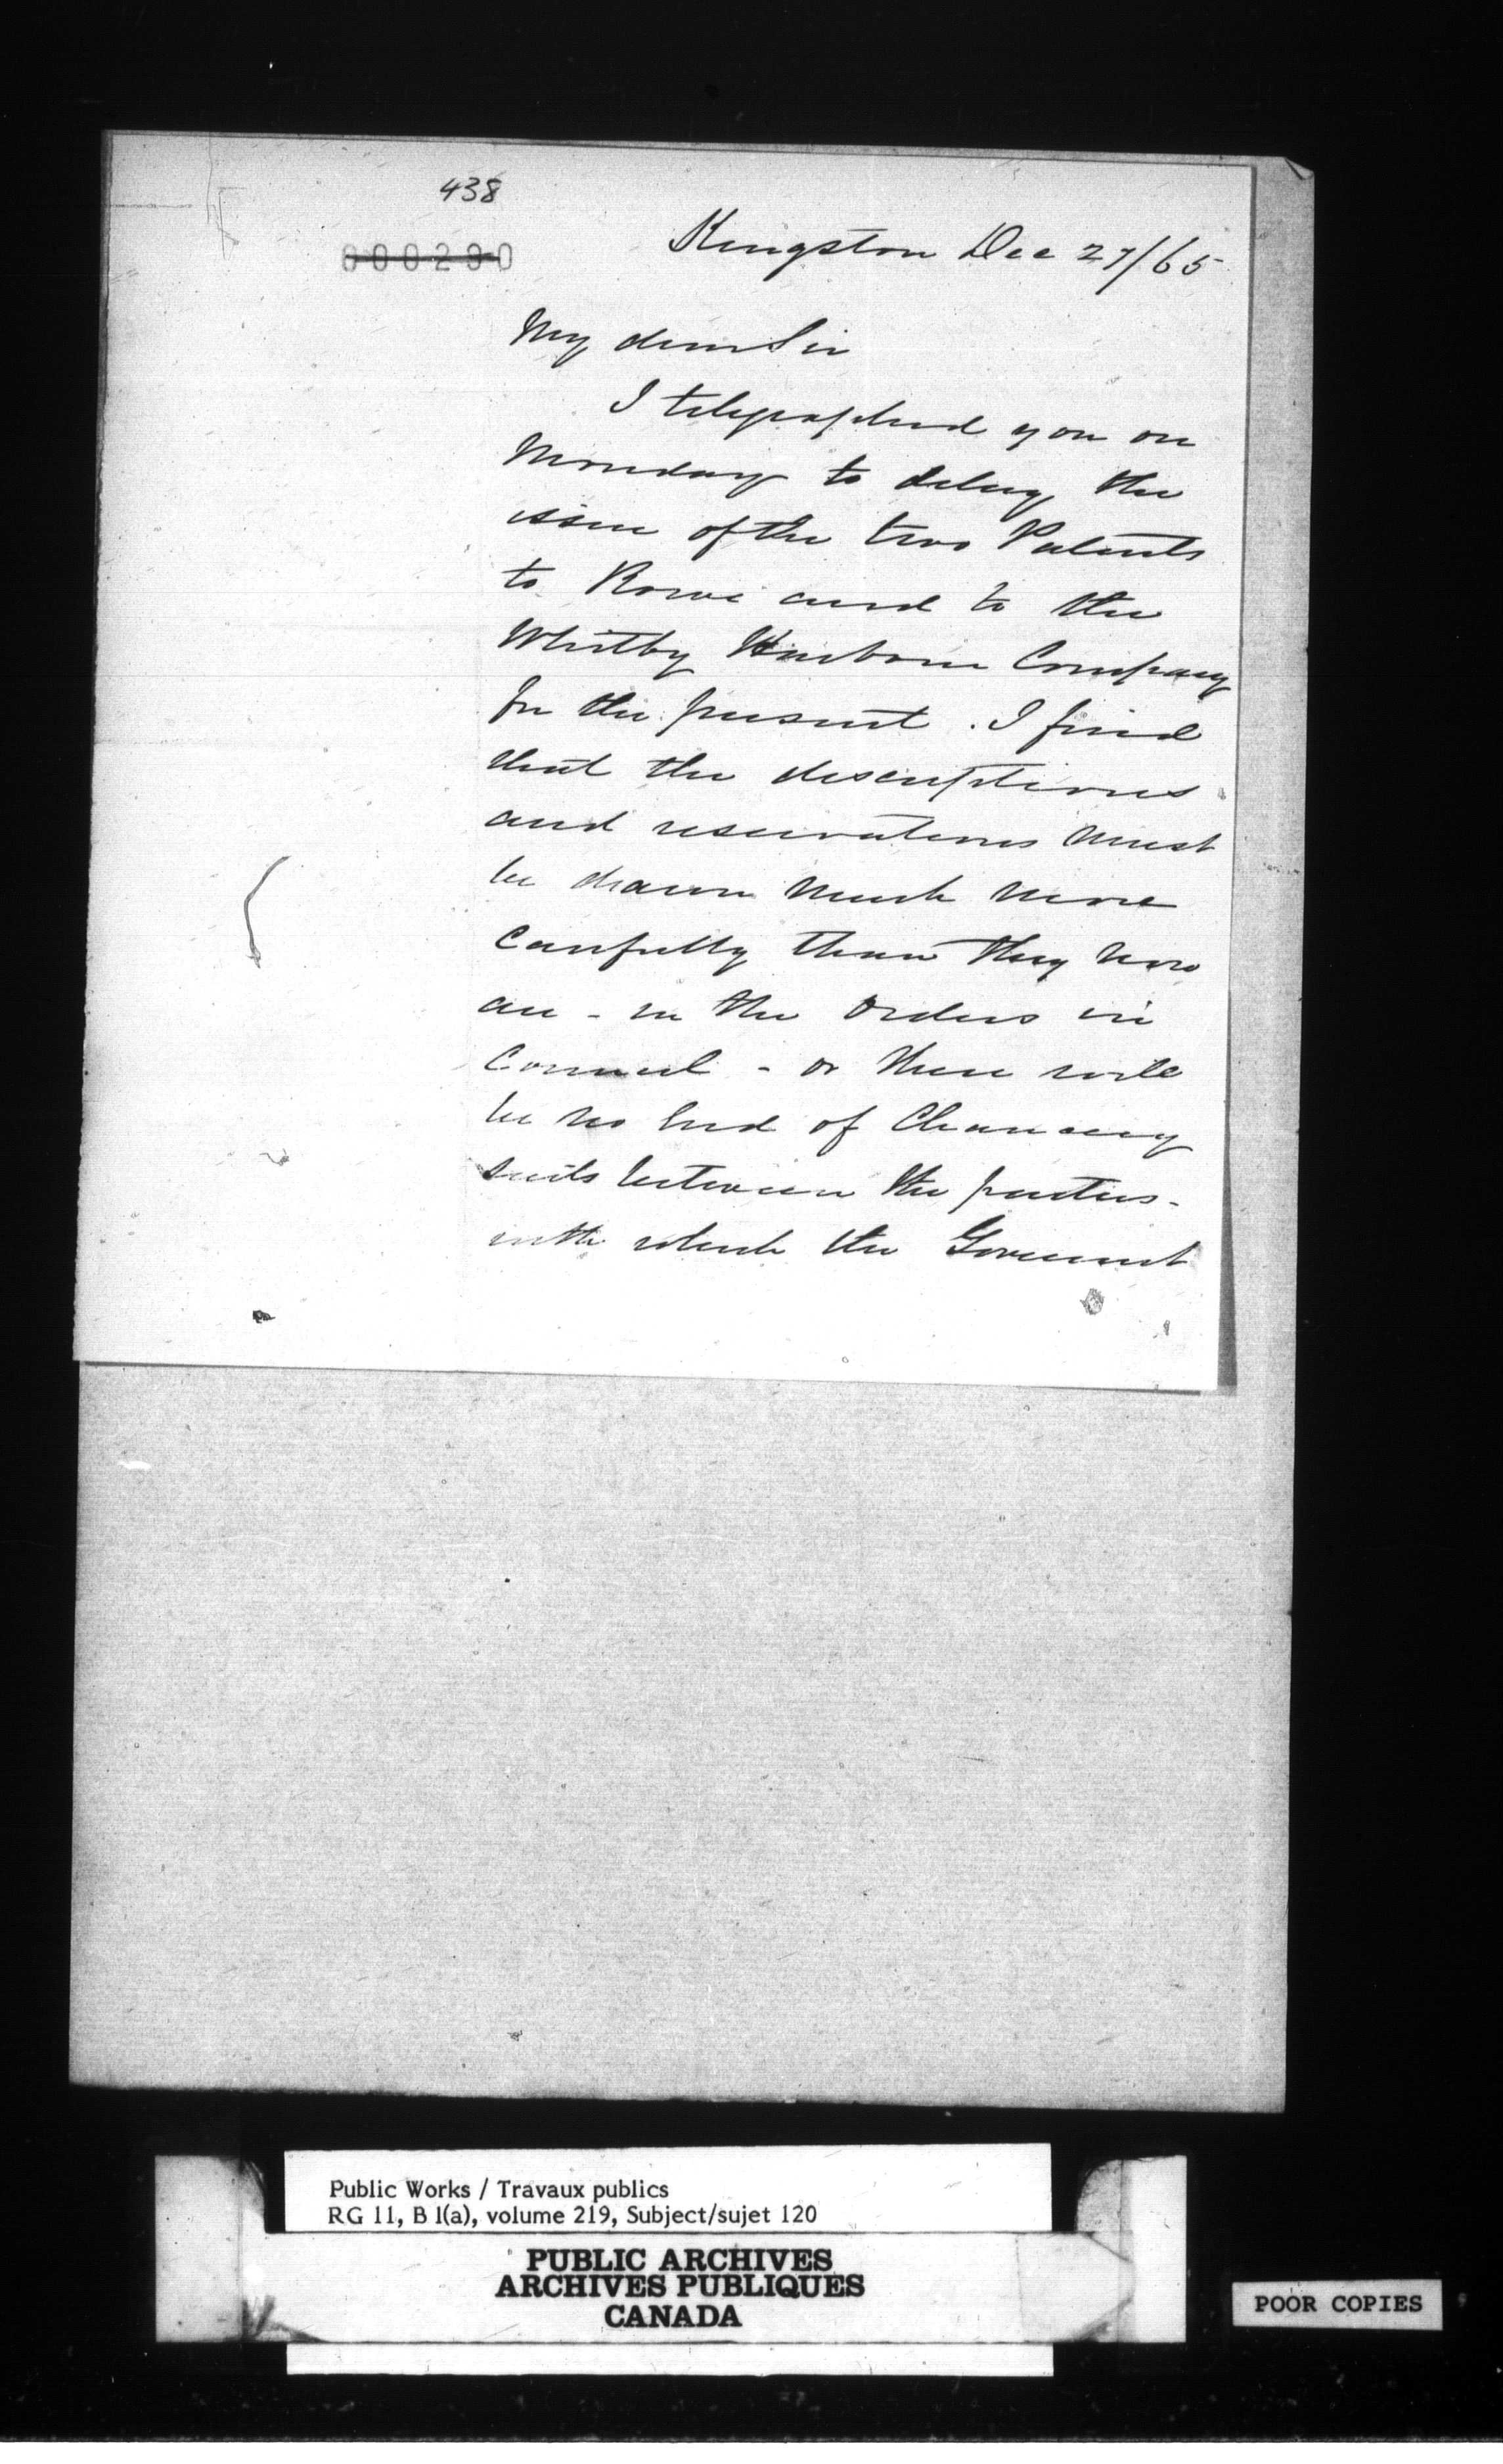 438
000290
Kingston Dec 27/65
My dear Sir
I telegraphed you on
Monday to delay the
issue of the two Patents
to Rowe and to the
Whitby Harbour Company
for the present. I find
that the descriptions
and reservations must
be drawn much more
carefully than they now
are - in the Orders in
Council - or there will
be no End of Chancery
suits between the parties -
with which the Goverment
Public Works / Travaux publics
RG 11, B 1(a), volume 219, Subject/sujet 120
PUBLIC ARCHIVES
ARCHIVES PUBLIQUES
CANADA
POOR COPIES